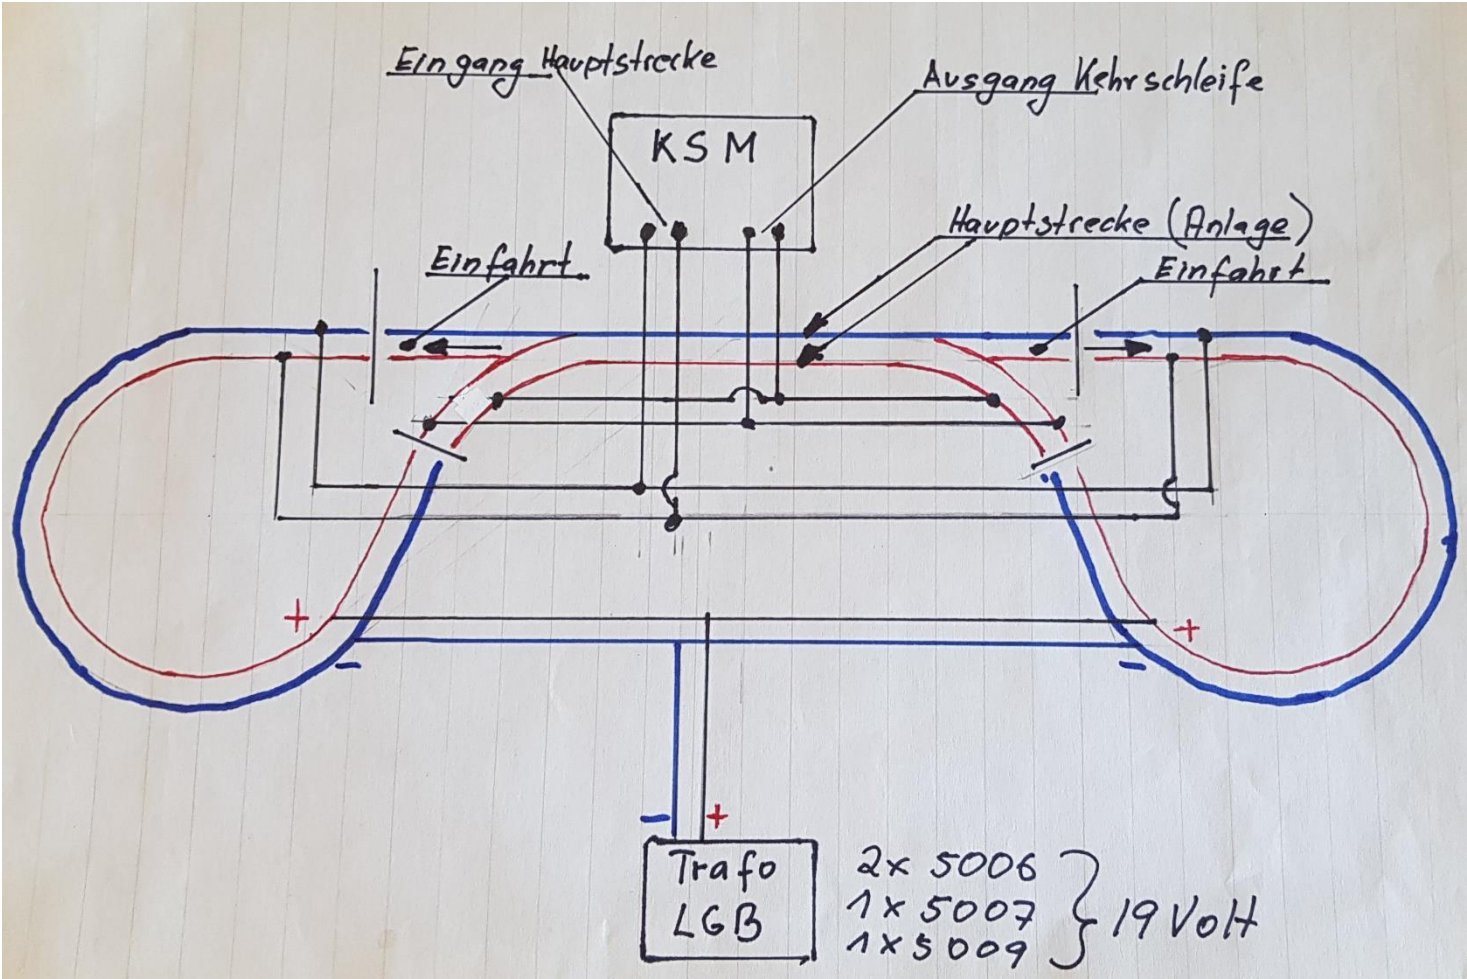 Eingang Hauptstrecke
Ausgang Kehrschleife
KSM
Hauptstrecke (Anlage)
Einfahrt
Einfahrt
+
+
-
-
- +
Trafo
LGB
2x 5006
1x 5007
1x 5009
19 Volt